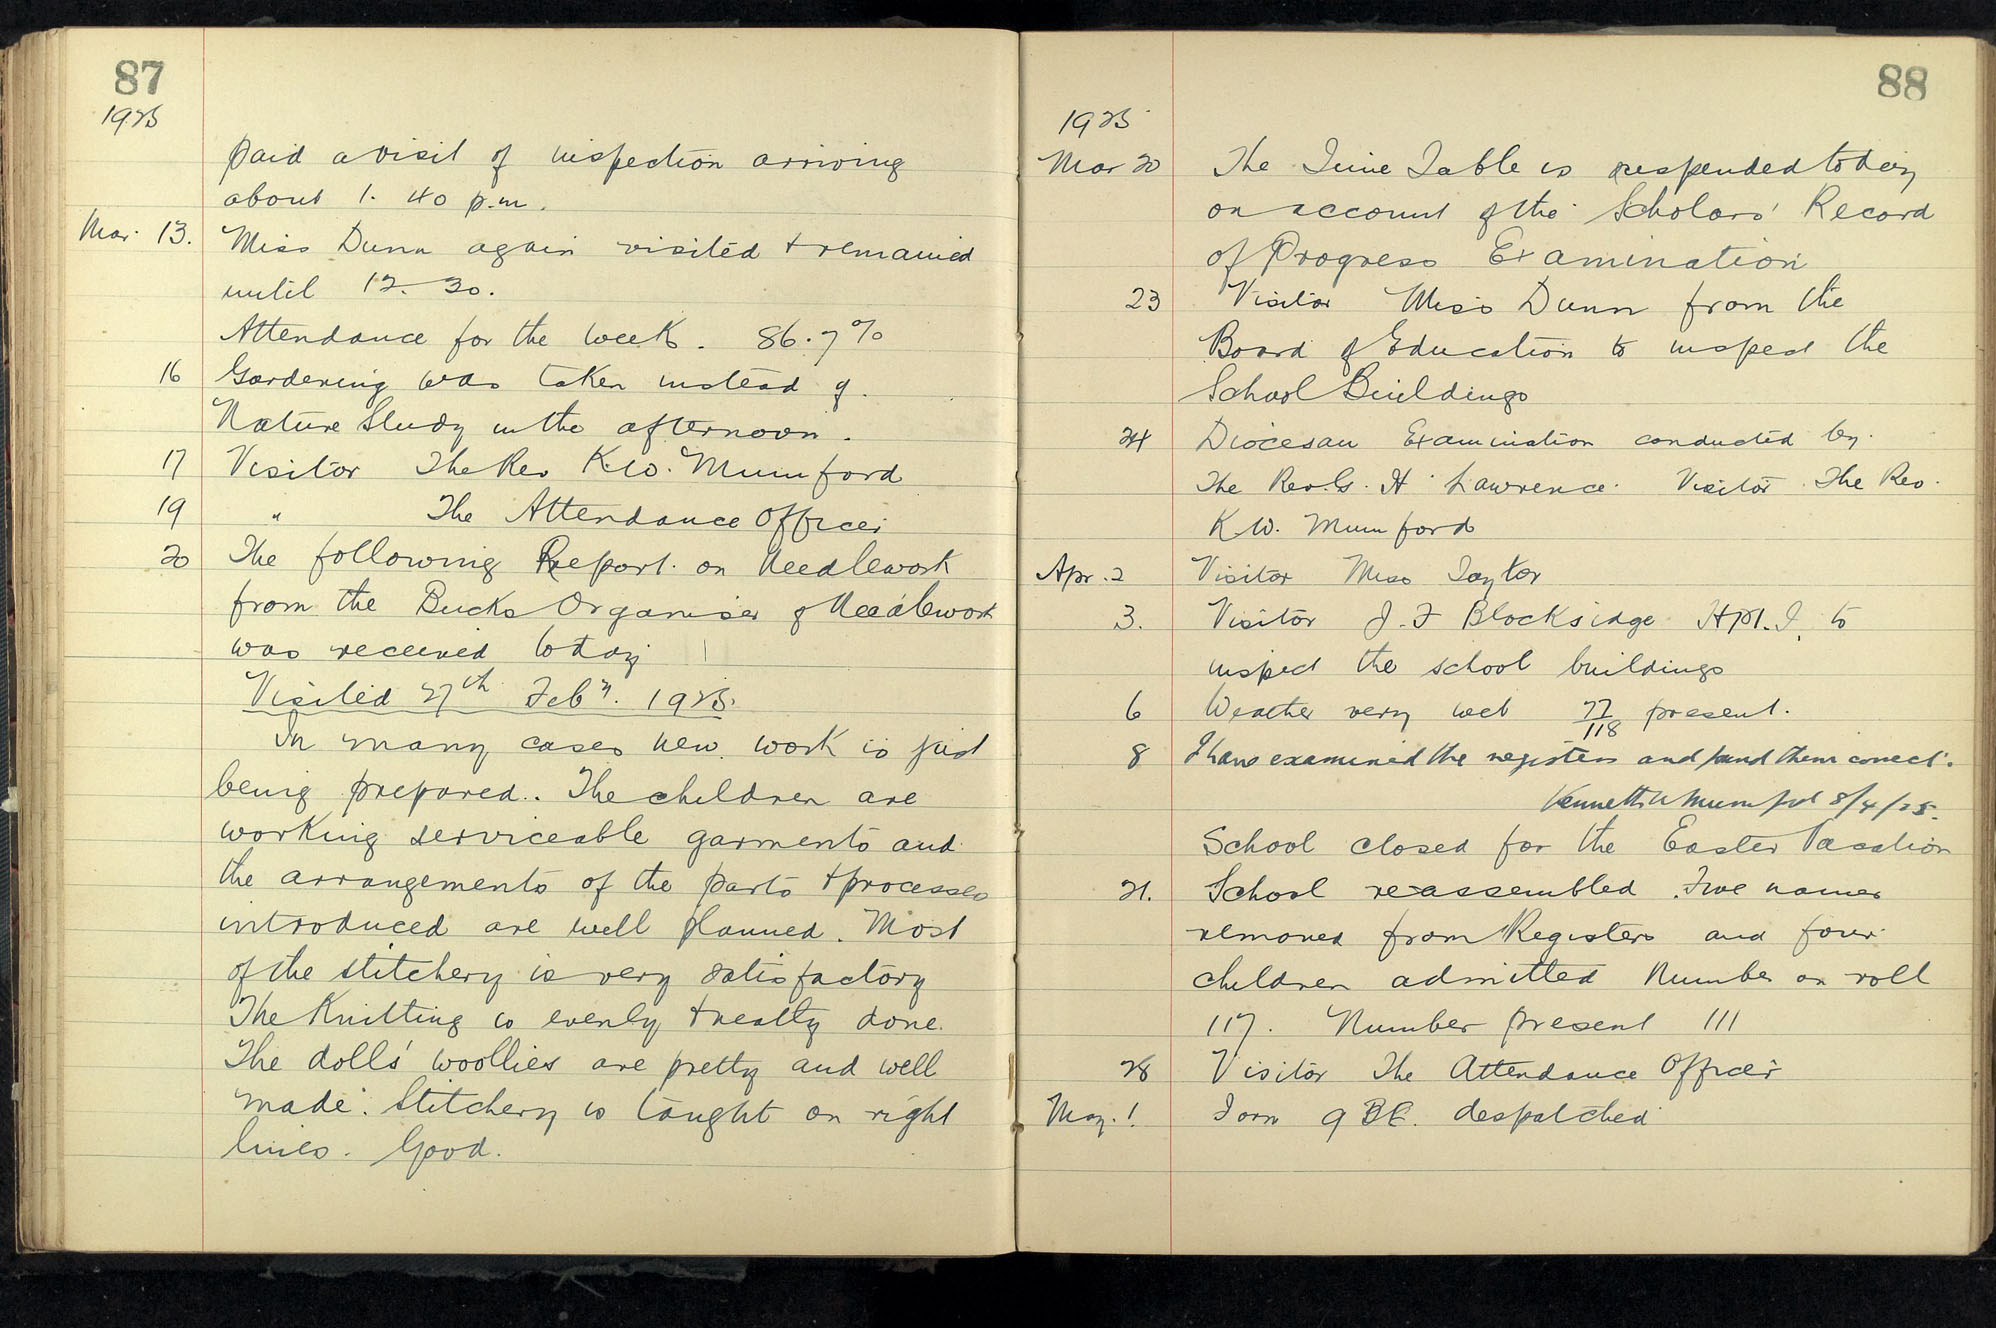 87
1925
paid a visit of inspection arriving
about 1. 40 p.m.
Mar. 13. Miss Dunn again visited + remained
until 12. 30.
Attendance for the week. 86.7%
16 Gardening was taken instead of
Nature Study in the afternoon.
17 Visitor The Rev K.W. Mumford
19 " The Attendance Officer
20 The following Report on Needlework
from the Bucks Organiser of Needlework
was received today
Visited 27th Feby. 1925.
In many cases new work is just
being prepared. The children are
working serviceable garments and
the arrangements of the parts + processes
introduced are well planned. Most
of the stitchery is very satisfactory
The Knitting is evenly + neatly done.
The dolls' woollies are pretty and well
made. Stitchery is taught on right
lines. Good.
88
1925
Mar 20 The Time Table is suspended today
on account of the Scholars' Record
of Progress Examination
23 Visitor Miss Dunn from the
Board of Education to inspect the
School Buildings
24 Diocesan Examination conducted by
The Rev. G. H. Lawrence. Visitor The Rev.
K.W. Mumford
Apr. 2 Visitor Miss Taylor
3. Visitor J. F Blocksidge H.M.I. to
inspect the school buildings
6 Weather very wet 77/118 present.
8 I have examined the registers and found them correct.
Kenneth W Mumford 8/4/25.
School closed for the Easter Vacation
21. School re-assembled. Five names
removed from Registers and four
children admitted Number on roll
117. Number present 111
28 Visitor The Attendance Officer
May. 1. Form 9 BE. despatched